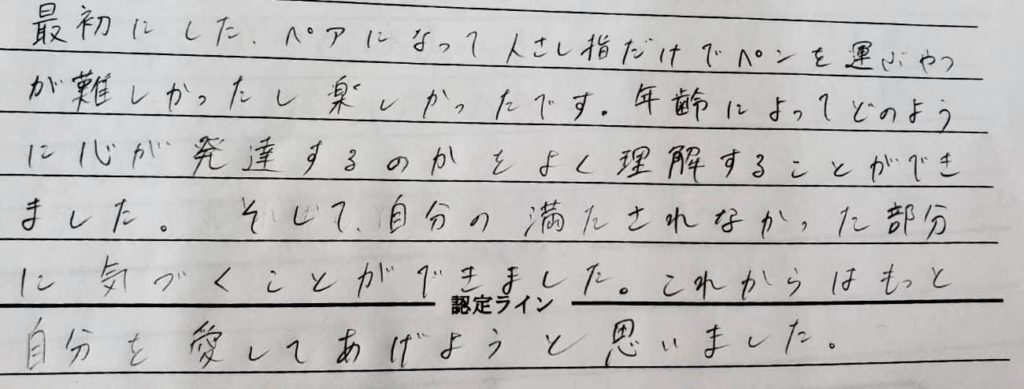 最初にした、ペアになって人さし指だけでペンを運ぶやつ
が難しかったし楽しかったです。年齢によってどのよう
に心が発達するのかをよく理解することができ
ました。そして、自分の満たされなかった部分
に気づくことができました。これからはもっと
認定ライン
自分を愛してあげようと思いました。